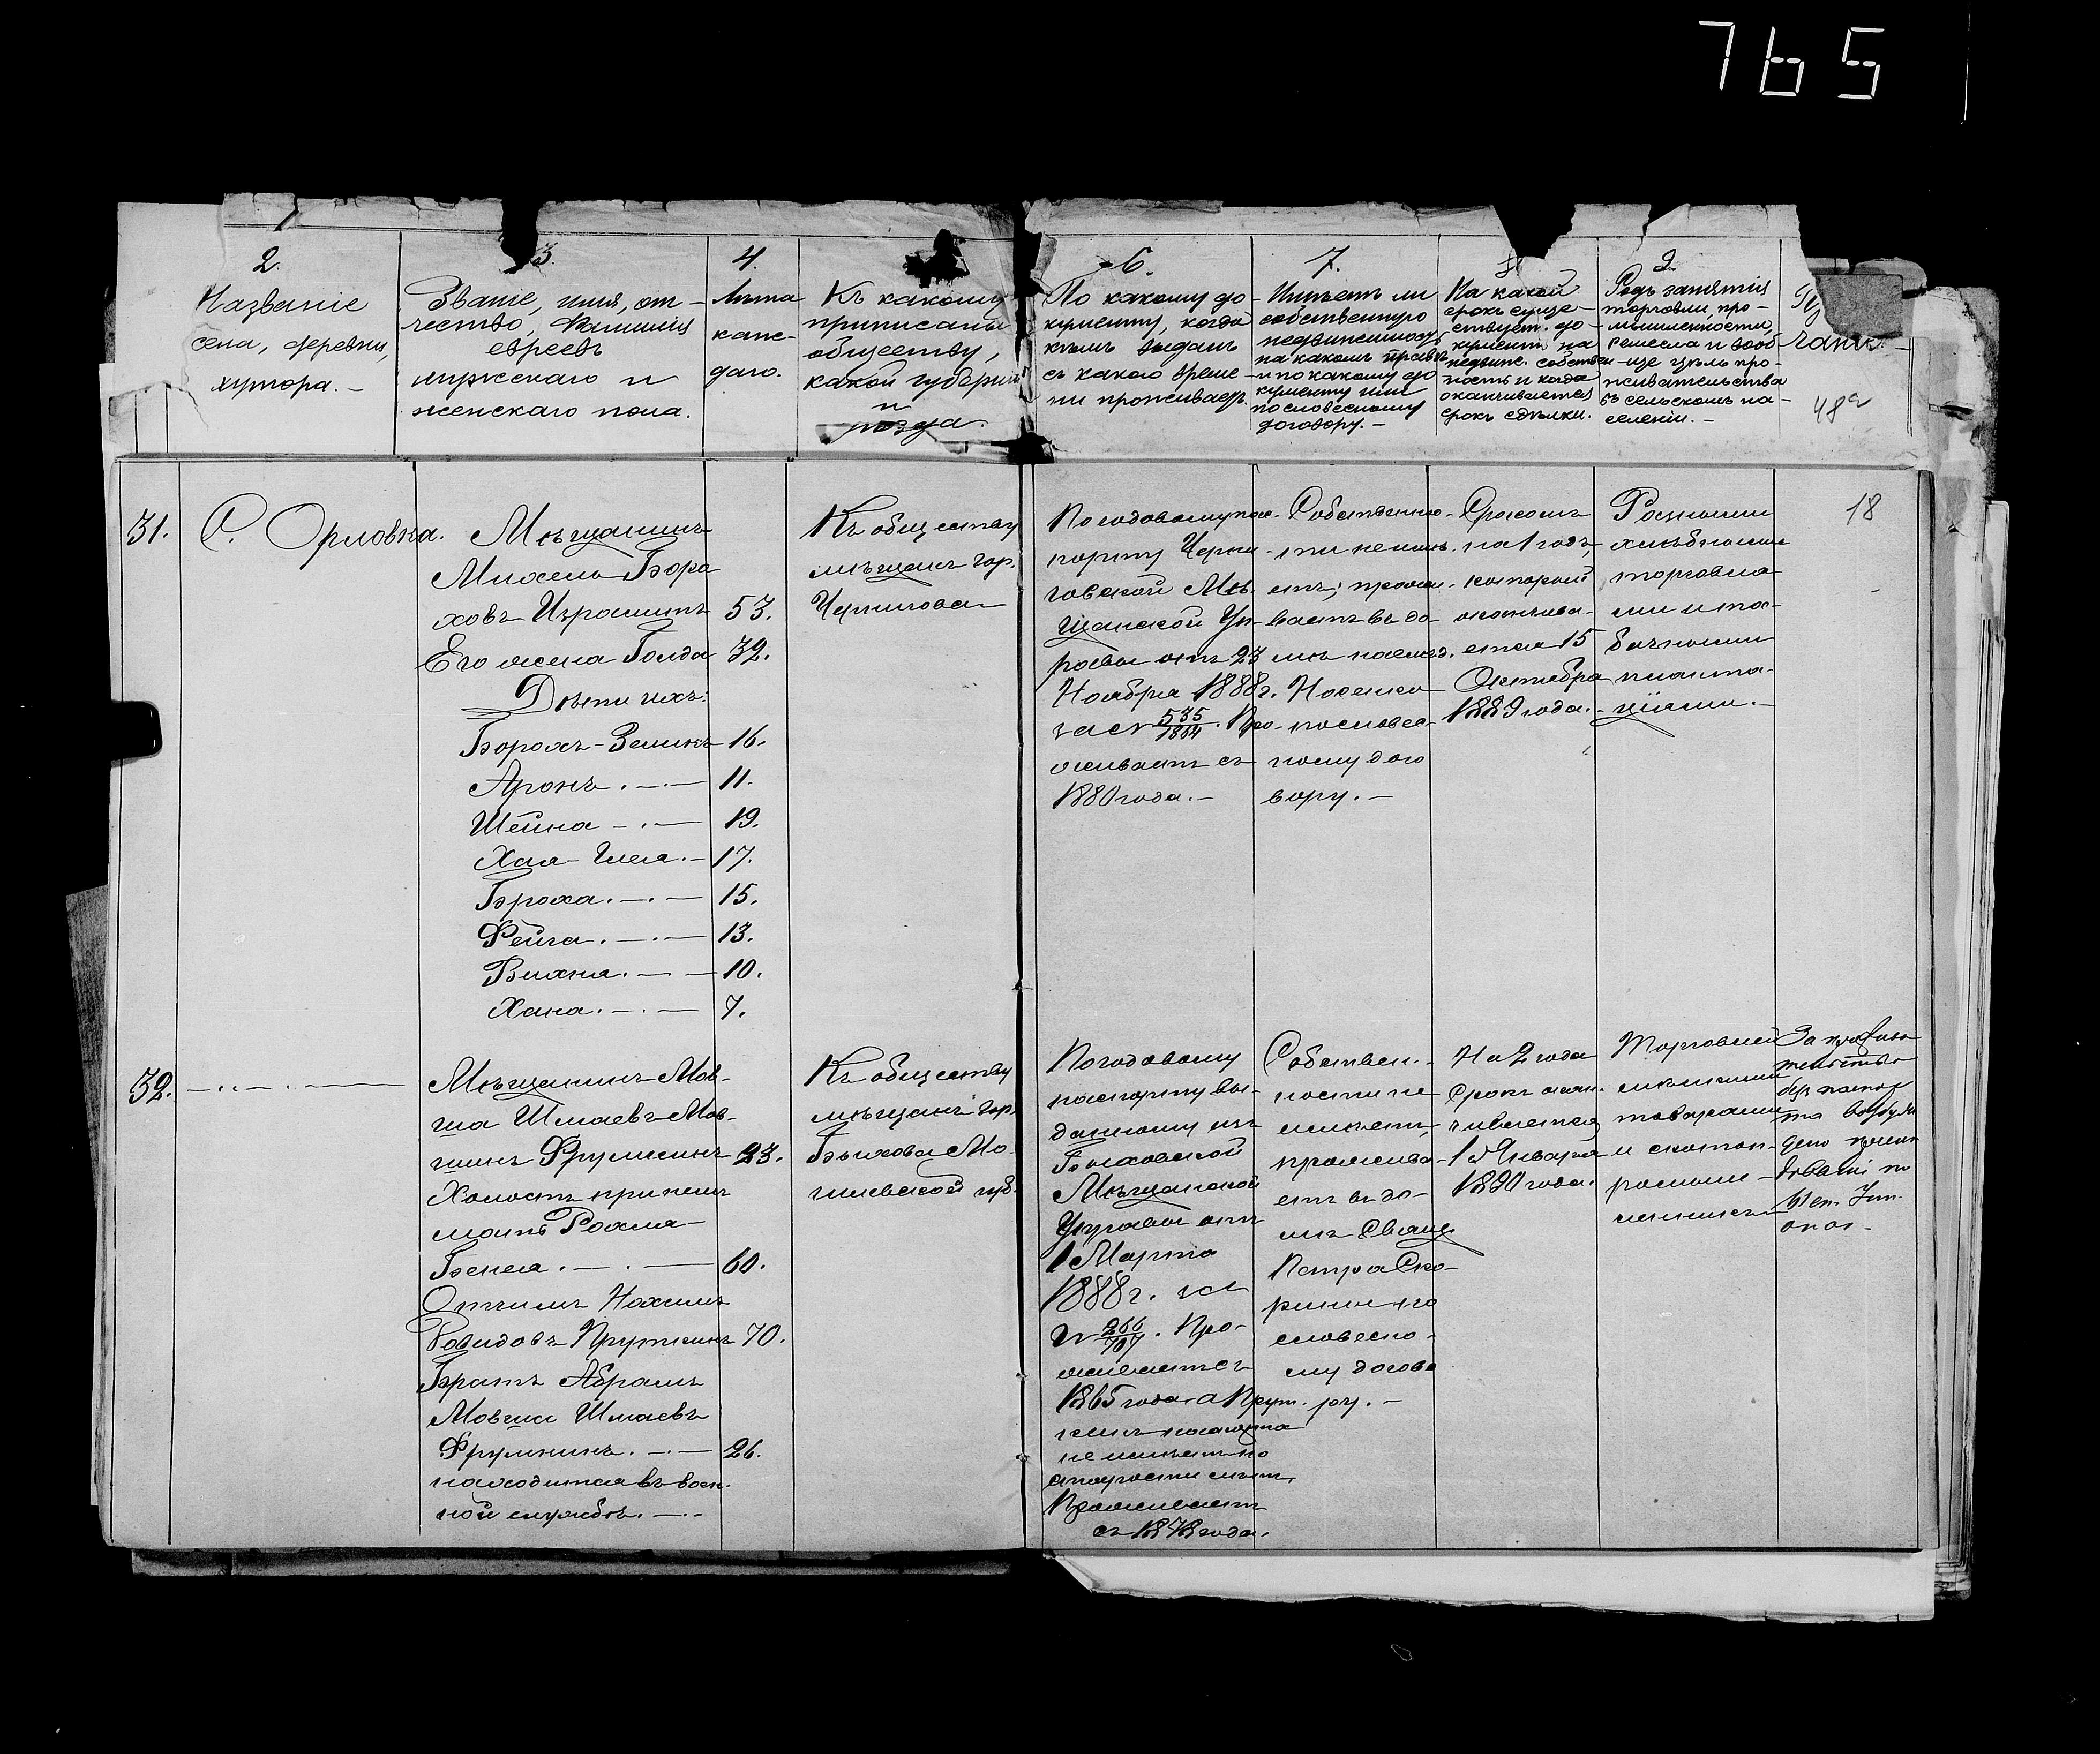 765
2.
Названіе
села, деревни,
хутора.—
3.
Званіе, имя, от-
чество, фамилія
евреевъ
мужскаго и
женскаго пола.
4.
Лѣта
каж-
даго.
Къ какому
приписаны
обществу,
какой губерніи
и
уѣзда.
6.
По какому до-
кументу, когда
кѣмъ выданъ
съ какого време-
ни проживаетъ.
7.
Имѣетъ ли
собственную
недвижимость
на какомъ правѣ
и по какому до-
кументу или
по словесному
договору.—
8
На какой
срокъ суще-
ствует. до-
кументъ на
недвиж. собствен-
ность и когда
оканчивается
срокъ сдѣлки.
9.
Родъ занятія
торговли, про-
мышленности,
ремесла и вооб-
ще цѣль про-
живательства
въ сельскомъ на-
селеніи.—
48а
31.
С. Орловка.
Мѣщанинъ
Михель Боро
ховъ 53.
Его жена Голда 32.
Дѣти ихъ:
Борохъ-Зеликъ 16.
Аронъ.—.— 11.
Шейна —.— 19.
Хая- 17.
Броха.—.— 15.
Фейга.—.— 13.
Вихна.— — 10.
Хана.—.— 7.
Къ обществу
мѣщанъ гор.
Чернигова
По годовому пас-
порту Черни-
говской Мѣ-
щанской Уп-
равы отъ 23
Ноября 1888г.
за № 535/1884. Про-
живаетъ съ
1880 года.—
Собственно-
сти не имѣ-
етъ; прожи-
ваетъ въ до
мѣ
Носенко
по словес-
ному дого
вору.—
Срокомъ
на 1 годъ,
который
окончива-
ется 15
Октября
1889 года.—
Разными
хлѣбными
торговля-
ми и та-
бачными
планта-
ціями.—
18
32.
—..—.———
Мѣщанинъ Мов-
ша Шмаевъ Мов-
шинъ Фрумкинъ 23.
Холостъ при немъ
мать Рохля-
Бенея.—.— 60.
Отчимъ Нохимъ
Довидовъ Пруткинъ 70.
Братъ Абрамъ
Мовша Шмаевъ
Фрумкинъ.—.— 26.
находится въ воен-
ной службѣ.—.-
Къ обществу
мѣщанъ гор.
Быхова Мо-
гилевской губ.
По годовому
паспорту вы-
данному изъ
Быховской
Мѣщанской
Управы отъ
1 Марта
1888г. за
№ 266/707. Про-
живаетъ съ
1865 года, а Прут-
кинъ паспорта
не имѣетъ по
старости лѣтъ.
Проживаетъ
съ 1878 года.
Собствен-
ности не
имѣетъ,
прожива-
етъ въ до-
мѣ Свящ.
Петра Ско-
рины по
словесно-
му догово
ру.—
На 2 года
срокъ окан-
чивается
1 Января
1890 года.
Торговлей
мѣлкими
товарами
и скотон-
За
жительство
без паспор
та возбуж
дено